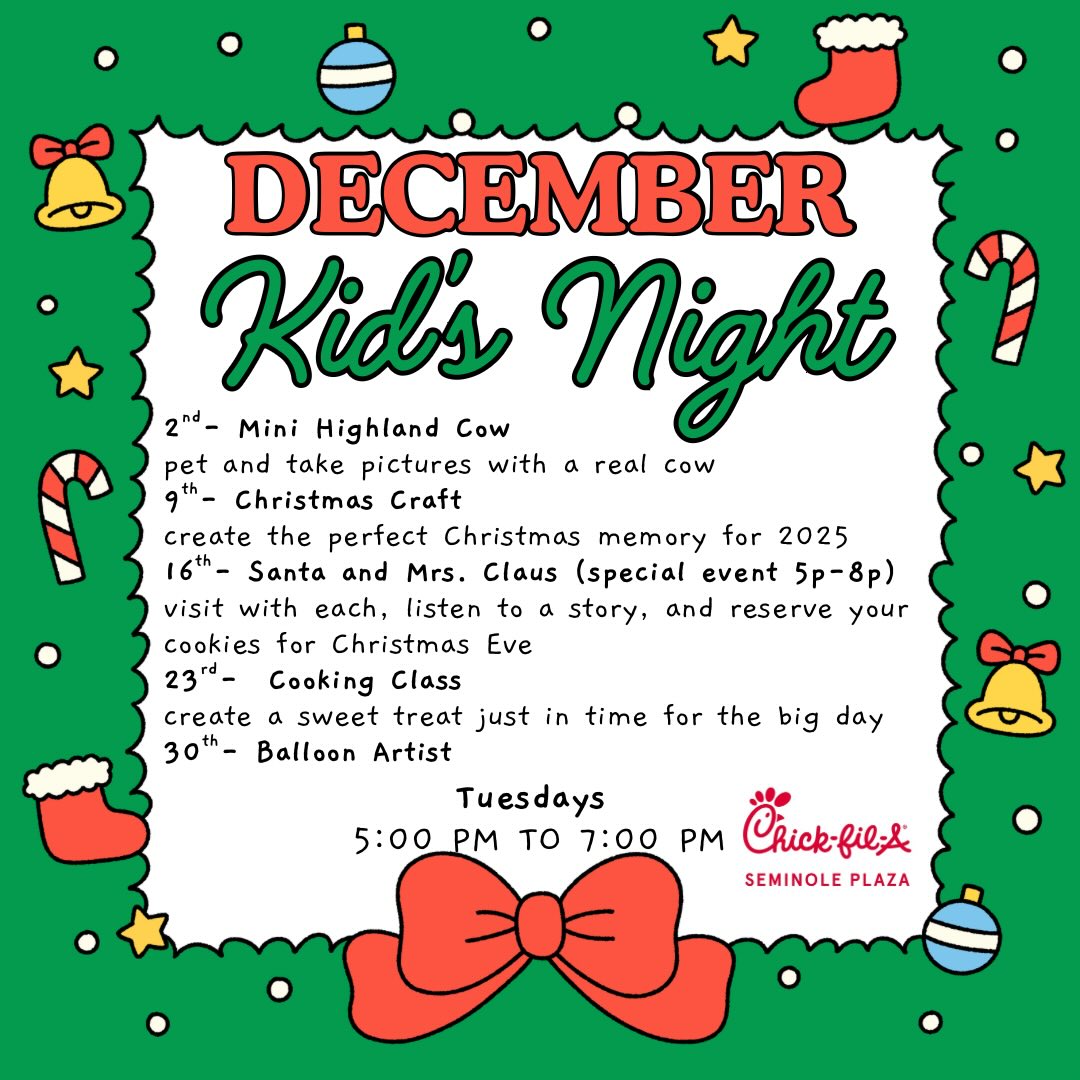 DECEMBER
Kid's Night
2nd- Mini Highland Cow
pet and take pictures with a real cow
9th- Christmas Craft
create the perfect Christmas memory for 2025
16th- Santa and Mrs. Claus (special event 5p-8p)
visit with each, listen to a story, and reserve your
cookies for Christmas Eve
23rd- Cooking Class
create a sweet treat just in time for the big day
30th- Balloon Artist
Tuesdays
5:00 PM TO 7:00 PM
Chick-fil-A
SEMINOLE PLAZA